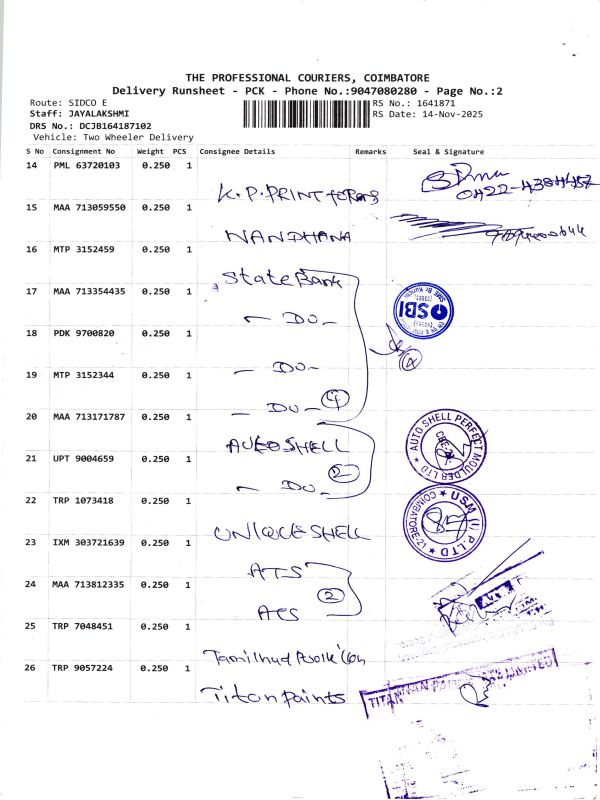 THE PROFESSIONAL COURIERS, COIMBATORE
Delivery Runsheet - PCK - Phone No.:9047080280 - Page No.:2
Route: SIDCO E RS No.: 1641871
Staff: JAYALAKSHMI RS Date: 14-Nov-2025
DRS No.: DCJB164187102
Vehicle: Two Wheeler Delivery
S No Consignment No Weight PCS Consignee Details Remarks Seal & Signature
14 PML 63720103 0.250 1
K.P.PRINT
15 MAA 713059550 0.250 1
NANDHANA
16 MTP 3152459 0.250 1
State Bank
17 MAA 713354435 0.250 1
- DO -
SBI
18 PDK 9700820 0.250 1
- DO -
4
19 MTP 3152344 0.250 1
- DO - 4
20 MAA 713171787 0.250 1
AUTO SHELL
AUTO SHELL PERFECT MOULDER LTD
21 UPT 9004659 0.250 1
2
- DO -
22 TRP 1073418 0.250 1
UNIQUE SHELL
USM (I) P.LTD COIMBATORE-21
23 IXM 303721639 0.250 1
ATS
24 MAA 713812335 0.250 1
2
25 TRP 7048451 0.250 1
Tamilnud
26 TRP 9057224 0.250 1
Titan Paints